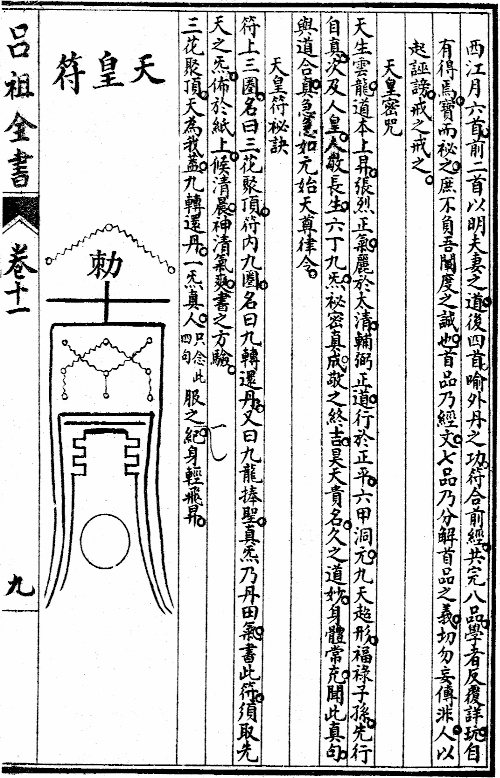 西江月六首前二首以明夫妻之道後四首喻外丹之功符合前經共完八品學者反覆詳玩自
有得焉寶而秘之庶不負吾闡度之誠也首品乃經文七品乃分解首品之義切勿妄傳非人以
起誣謗戒之戒之
天皇密咒
天生雲龍道本上昇張烈正氣麗於太清輔弼正道行於正平六甲洞元九天超形福祿子孫先行
自真次及人皇人敬長生六丁九炁祕密真成敬之終吉昊天貴名久之道妙身體常充聞此真句
與道合真急急如元始天尊律令
天皇符祕訣
符上三圈名曰三花聚頂符内九圈名曰九轉還丹又曰九龍捧聖真炁乃丹田氣書此符須取先
天之炁佈於紙上候清晨神清氣爽書之方驗
三花聚頂天為我蓋九轉還丹一炁真人只念此四句服之紀身輕飛昇
天皇符
勅
呂祖全書
卷十一
九